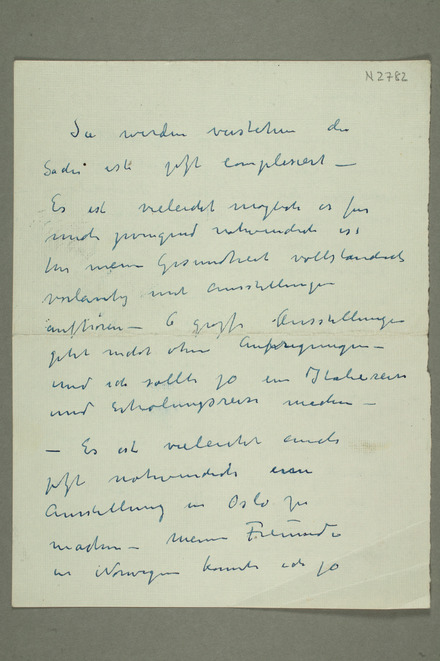 N 2782
Sie werden verstehen die
Sache ist jetzt compliziert —
Es ist vieleicht möglich es für
mich zwingend nothwendich ist
für meine Gesundheit vollständich
vorläufig mit Ausstellungen
aufhören — 6 große Ausstellungen
geht nicht ohne Aufregungen —
und ich sollte ja eine Italiereise
und Erholungsreise machen —
— Es ist vieleicht auch
jetzt nothwendich eine
Ausstellung in Oslo zu
machen — Meine Freunde
in Norwegen könnte ich ja